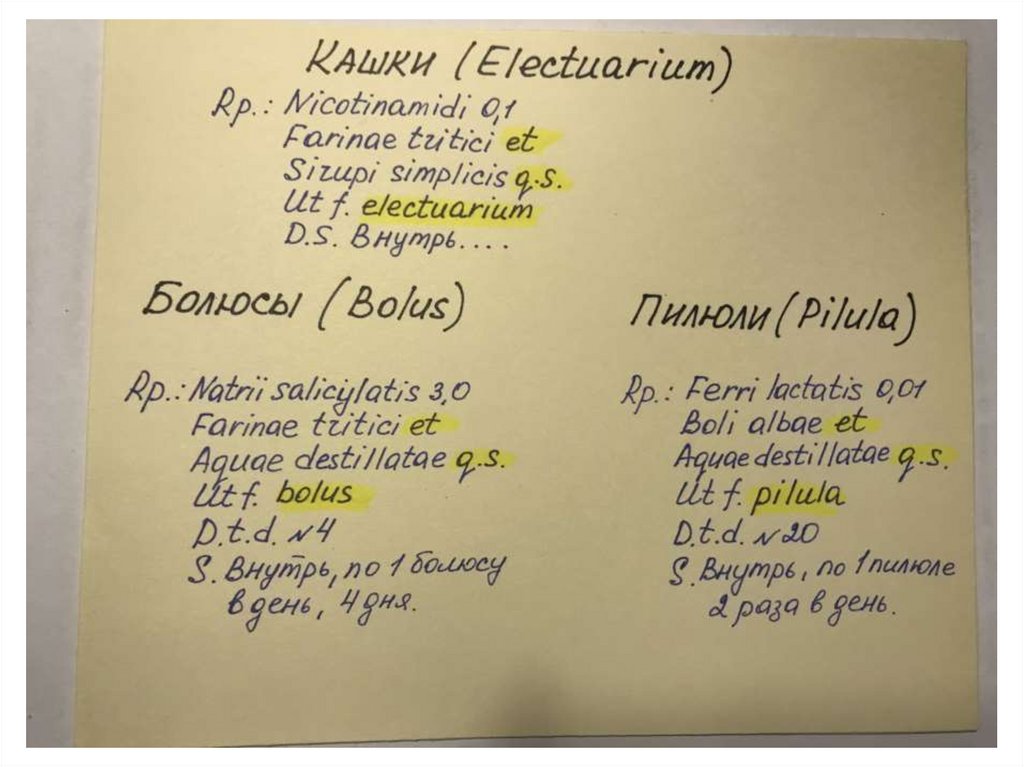 Кашки (Electuarium)
Rp.: Nicotinamidi 0,1
Farinae tritici et
Sirupi simplicis q.s.
Ut f. electuarium
D.S. Внутрь....
Болюсы (Bolus)
Rp.: Natrii salicylatis 3,0
Farinae tritici et
Aquae destillatae q.s.
Ut f. bolus
D.t.d. N4
S. Внутрь, по 1 болюсу
в день, 4 дня.
Пилюли (Pilula)
Rp.: Ferri lactatis 0,01
Boli albae et
Aquae destillatae q.s.
Ut f. pilula
D.t.d. N20
S. Внутрь, по 1 пилюле
2 раза в день.